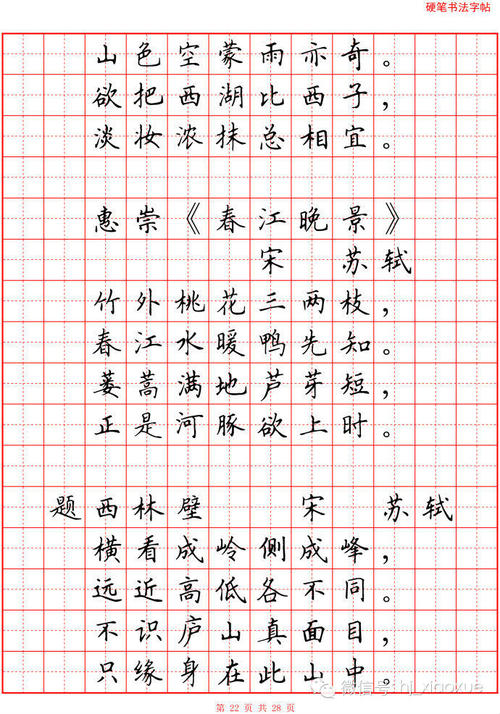 硬笔书法字帖
山色空蒙雨亦奇。
欲把西湖比西子，
淡妆浓抹总相宜。
惠崇《春江晚景》
宋 苏轼
竹外桃花三两枝，
春江水暖鸭先知。
蒌蒿满地芦芽短，
正是河豚欲上时。
题西林壁 宋 苏轼
横看成岭侧成峰，
远近高低各不同。
不识庐山真面目，
只缘身在此山中。
微信号: hj_xiaoxue
第 22 页 共 28 页